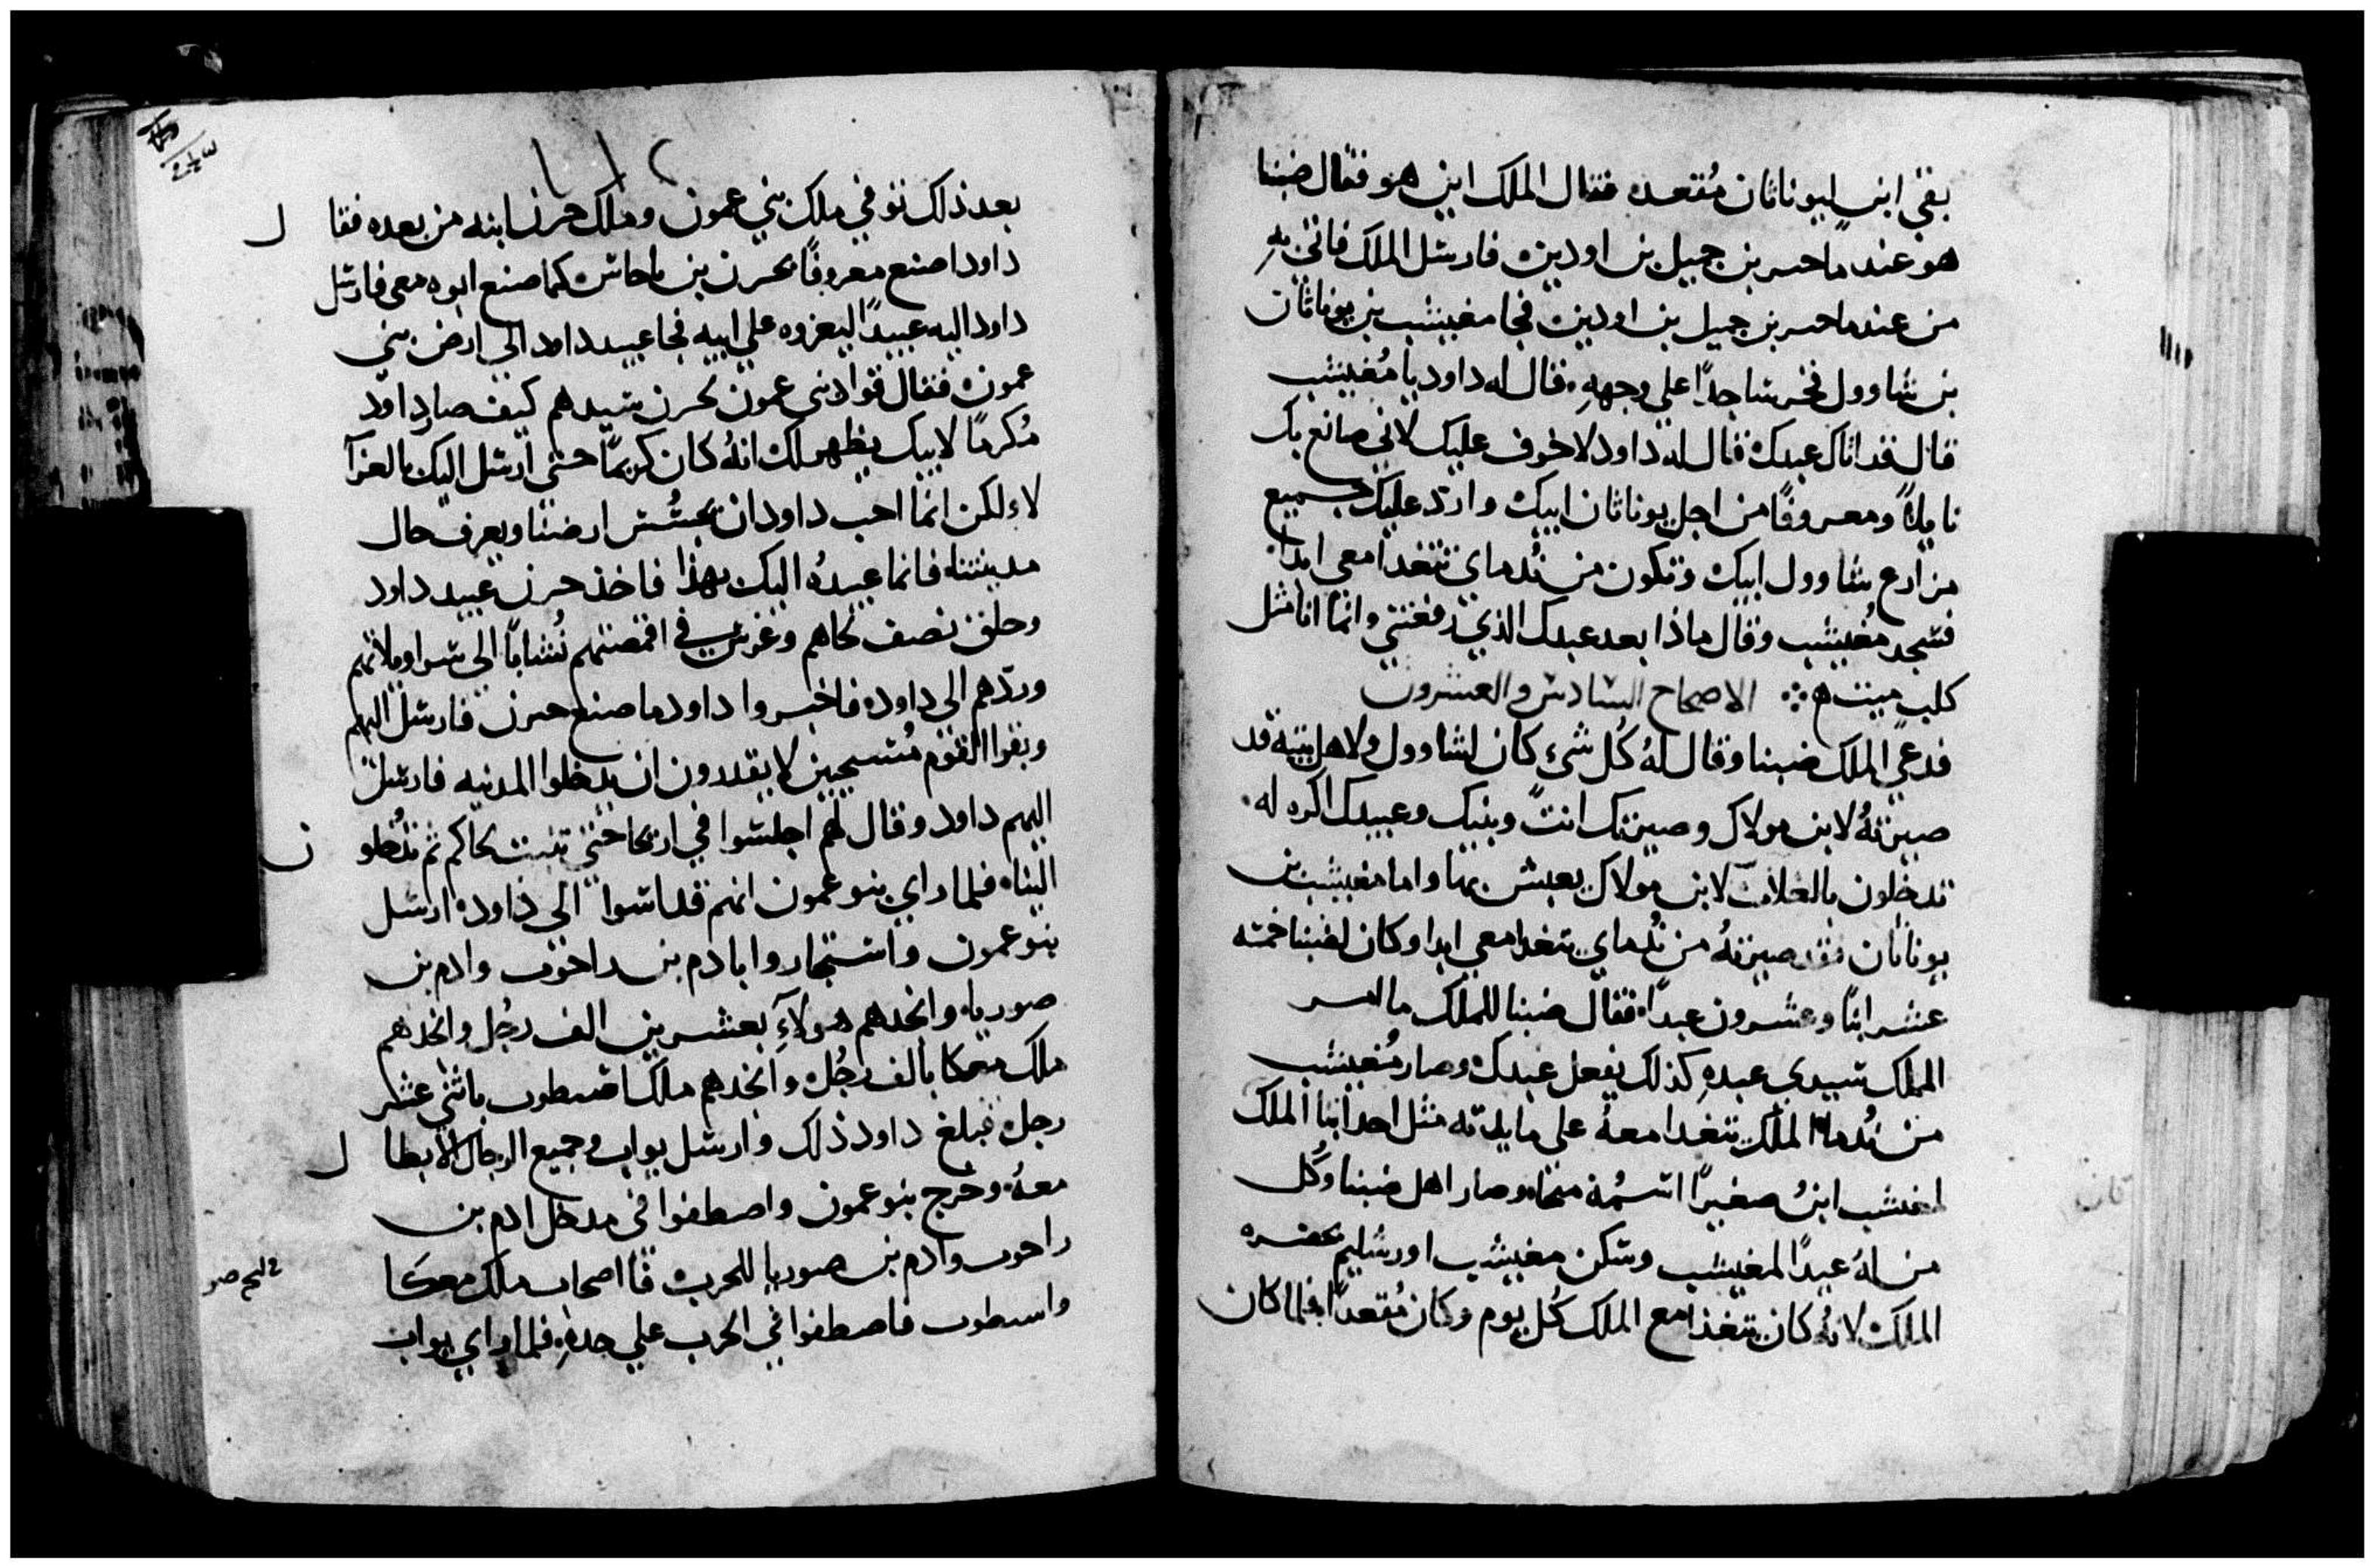 بقي ابن ليوناثان مُقعد فقال الملك اين هو فقال ضبنا
هو عند ماحسر بن جميل بن اودين فارسل الملك فاتي بهِ
من عند ماحسر بن جميل بن اودين فجا مغيبشب بن يوناثان
بن شاوول فخر ساجدًا علي وجههِ فقال له داود يا مُغيبشب
قال قد اتاك عبدك قال له داود لا خوف عليك لاني صانع بك
نايلاً ومعروفًا من اجل يوناثان ابيك وارد عليك جميع
مزارع شاوول ابيك وتكون من نُدماي تتغدا معي ابدا
فسجد مُغيبشب وقال ماذا بعد عبدك الذي رفعتني وانما انا مثل
كلب ميت ❖ الاصحاح السادس والعشرون
فدعي الملك ضبنا وقال لهُ كُل شيء كان لشاوول ولاهل بيته قد
صيرتهُ لابن مولاك وصيرتك انت وبنيك وعبيدك اكره له
تدخلون بالغلات لابن مولاك يعيش بها واما مغيبشب بن
يوناثان فقد صيرتهُ من نُدماي يتغدا معي ابدا وكان لضبنا خمسه
عشر ابنًا وعشرون عبدًا فقال ضبنا للملك ما امر
الملك سيدي عبدهِ كذلك يفعل عبدك وصار مُغيبشب
من نُدما الملك يتغدا معهُ علي مايدته مثل احد ابنا الملك
لمغيشب ابنُ صغيرًا اسمُه منحا وصار اهل ضبنا وكُل
من لهُ عبيدًا لمغيبشب وسكن مغيبشب اورشليم بحضره
الملك لانهُ كان يتغذا مع الملك كُل يوم وكان مُقعدًا فلما كان
بعد ذلك توفي ملك بني عمون وملك حرن ابنه من بعده فقال
داود اصنع معروفًا بحرن بن ماحاش كما صنع ابوه معي فارسل
داود اليه عبيدًا ليعزوه علي ابيه فجا عبيد داود الي ارض بني
عمون فقال قواد بني عمون لحرن سيدهم كيف صار داود
مُكرمًا لابيك يظهر لك انهُ كان كريمًا حتي ارسل اليك بالعزآ
لا لكن انما احب داود ان يجسُس ارضنا ويعرف حال
مدينتنا فانما عبيدهُ اليك بهذا فاخذ حرن عبيد داود
وحلق نصف لحاهم وغرس في اقمصتهم نُشابًا الي سراويلاتهم
وردهم الي داود فاخبروا داود ما صنع حرن فارسل اليهم
وبقوا القوم مُستحيين لا يقدرون ان يدخلوا المدينه فارسل
اليهم داود وقال لهم اجلسوا في اريحا حتي تنبت لحاكم ثم تدُخلون
الينا فلما راي بنو عمون انهم قد اسوا الي داود ارسل
بنو عمون واستجاروا بادم بن راحوب وادم بن
صوريا وانجدهم هولآءِ بعشرين الف رجُل وانجدهم
ملك معكا بالف رجُل وانجدهم ملك اسطوب باثني عشر
رجل فبلغ داود ذلك وارسل يواب وجميع الرجال الابطال
معهُ وخرج بنو عمون واصطفوا في مدخل ادم بن
راحوب وادم بن صوريا للحرب فاا اصحاب ملك معكا
واسطوب فاصطفوا في الحرب علي حدهِ فلما راي يواب